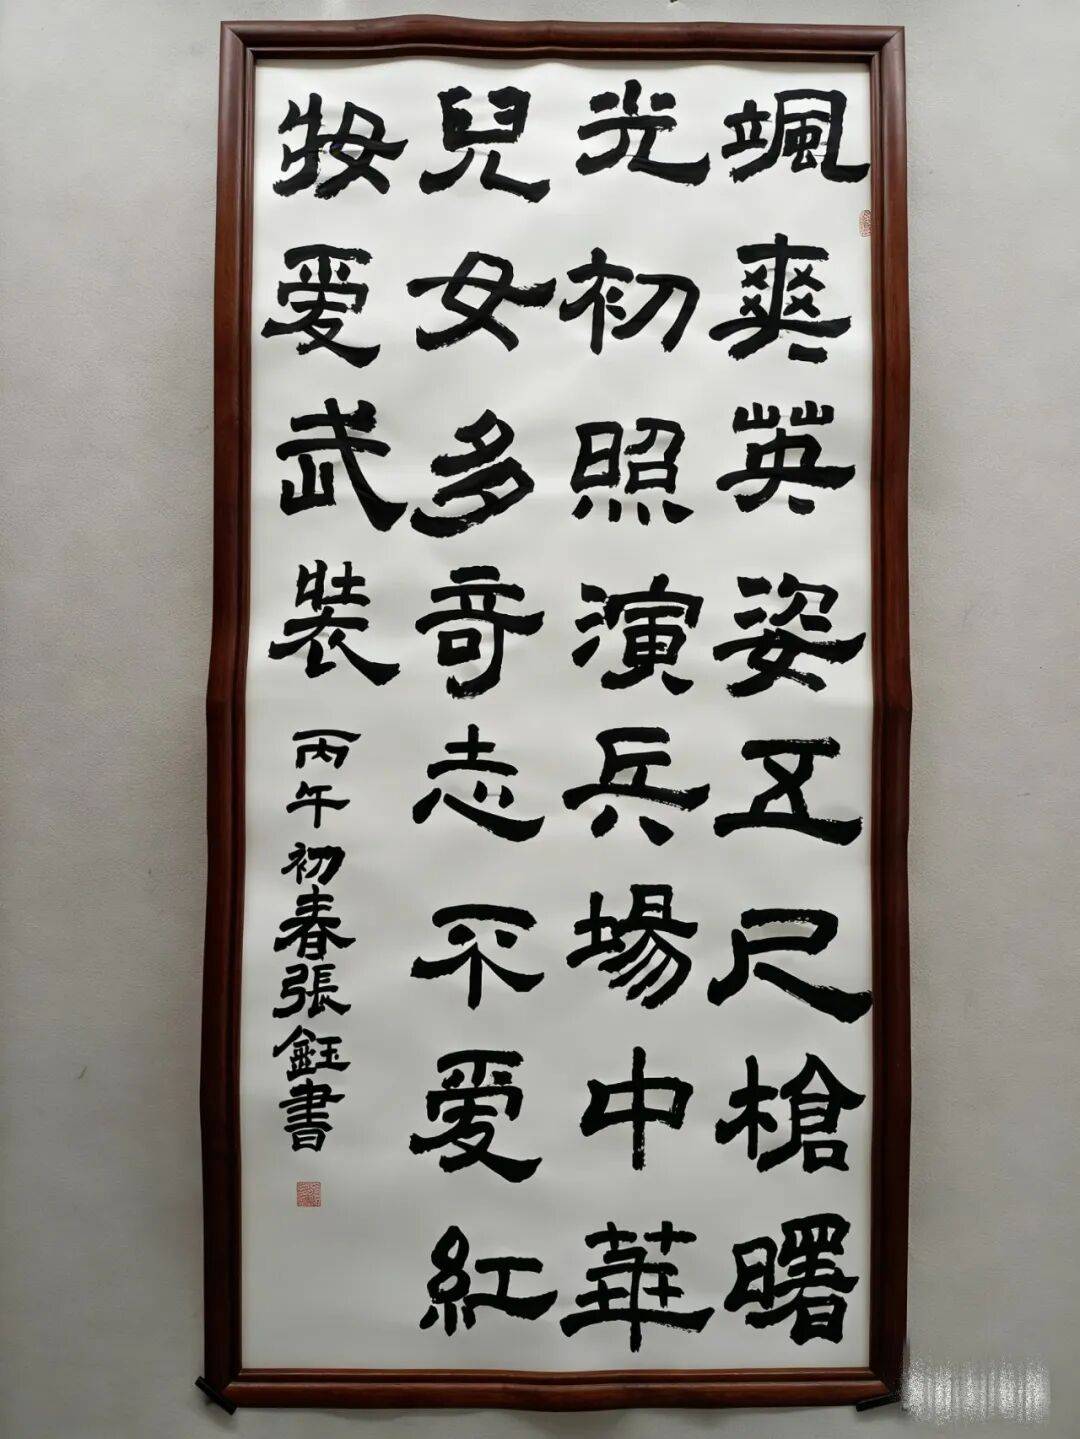 颯爽英姿五尺槍曙
光初照演兵場中華
兒女多奇志不爱紅
妝爱武裝
丙午初春張鈺書